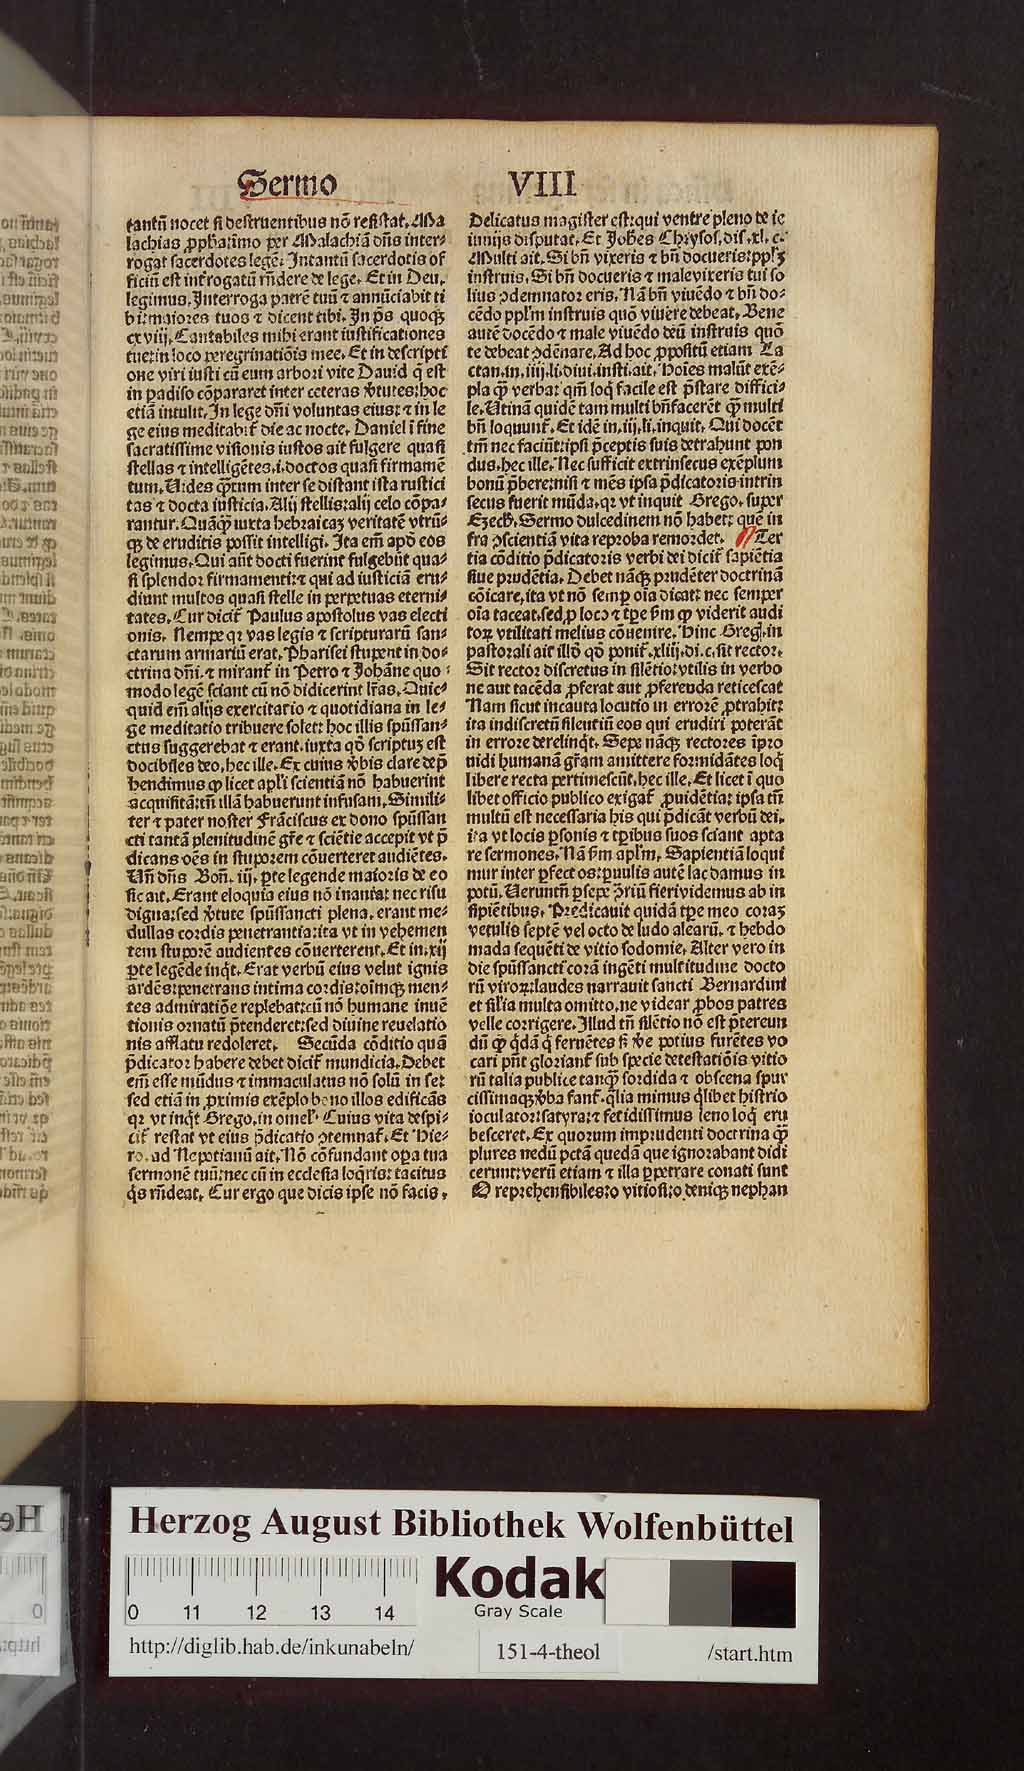 Sermo VIII
tantū nocet si destruentibus nō resistat. Ma
lachias ꝓph̄a: imo per Malachiā dn̄s inter-
rogat sacerdotes legē. Intantū sacerdotis of
ficiū est int̄rogatū rn̄dere de lege. Et in Deu.
legimus. Interroga patrē tuū ⁊ annūciabit ti
bi: maiores tuos ⁊ dicent tibi. In ps̄ quoqꝫ
cxviij. Cantabiles mihi erant iustificationes
tue: in loco peregrinatiōis mee. Et in descripti
one viri iusti cū eum arbori vite Dauid q̄ est
in padiso cōpararet inter ceteras v̄tutes: hoc
etiā intulit. In lege dn̄i voluntas eius: ⁊ in le
ge eius meditabit̄ die ac nocte. Daniel ī fine
sacratissime visionis iustos ait fulgere quasi
stellas ⁊ intelligētes .i. doctos quasi firmamē
tum. Uides qͣtum inter se distant ista rustici
tas ⁊ docta iusticia. Alij stellis: alij celo cōpa-
rantur. Quāqͣꝫ iuxta hebraicaꝫ veritatē vtrū-
qꝫ de eruditis possit intelligi. Ita em̄ apd̄ eos
legimus. Qui aūt docti fuerint fulgebūt qua-
si splendor firmamenti: ⁊ qui ad iusticiā eru-
diunt multos quasi stelle in perpetuas eterni-
tates. Cur dicit̄ Paulus apostolus vas electi
onis. Nempe qꝛ vas legis ⁊ scripturarū san-
ctarum armariū erat. Pharisei stupent in do-
ctrina dn̄i. ⁊ mirant̄ in Petro ⁊ Johāne quo-
modo legē sciant cū nō didicerint lr̄as. Quic-
quid em̄ alijs exercitatio ⁊ quotidiana in le-
ge meditatio tribuere solet: hoc illis spūssan-
ctus suggerebat ⁊ erant. iuxta qd̄ scriptuꝫ est
docibiles deo. hec ille. Ex cuius v̄bis clare dep̄
hendimus ꝙ licet apl̄i scientiā nō habuerint
acquisitā: tn̄ illā habuerunt infusam. Simili-
ter ⁊ pater noster Frāciscus ex dono spūssan
cti tantā plenitudinē gr̄e ⁊ sciētie accepit vt p̄
dicans oēs in stuporem cōuerteret audiētes.
Un̄ dn̄s Bon̄. iij. ꝑte legende maioris de eo
sic ait. Erant eloquia eius nō inania: nec risu
digna: sed v̄tute spūssancti plena. erant me-
dullas cordis penetrantia: ita vt in vehemen
tem stuporē audientes cōuerterent. Et in .xij
ꝑte legēde inq̄t. Erat verbū eius velut ignis
ardēs: penetrans intima cordis: oīmqꝫ men-
tes admiratiōe replebat: cū nō humane inuē
tionis ornatū p̄tenderet: sed diuine reuelatio
nis afflatu redoleret. Secūda cōditio quā
p̄dicator habere debet dicit̄ mundicia. Debet
em̄ esse mūdus ⁊ immaculatus nō solū in se:
sed etiā in ꝓximis exēplo bono illos edificās
qꝛ vt inq̄t Grego. in omel̓. Cuius vita despi-
cit̄ restat vt eius p̄dicatio ꝯtemnat̄. Et Hie-
ro. ad Nepotianū ait. Nō cōfundant oꝑa tua
sermonē tuū: nec cū in ecclesia loq̄ris: tacitus
q̄s rn̄deat. Cur ergo que dicis ipse nō facis.
Delicatus magister est: qui ventre pleno de ie
iunijs disputat. Et Joh̄es Chrysos. dis. xl. c.
Multi ait. Si bn̄ vixeris ⁊ bn̄ docueris: ppl̄ꝫ
instruis. Si bn̄ docueris ⁊ malevixeris tui so
lius ꝯdemnator eris. Nā bn̄ viuēdo ⁊ bn̄ do-
cēdo ppl̄m instruis quō viuere debeat. Bene
autē docēdo ⁊ male viuēdo deū instruis quō
te debeat ꝯdēnare. Ad hoc ꝓpositū etiam La
ctan. in .iiij. li. diui. insti. ait. Hoīes malūt exē-
pla qͣꝫ verba: qm̄ loq̄ facile est p̄stare difficí-
le. Utinā quidē tam multi bn̄facerēt qͣꝫ multi
bn̄ loquunt̄. Et idē in .iij. li. inquit. Qui docēt
tm̄ nec faciūt: ipsi p̄ceptis suis detrahunt pon
dus. hec ille. Nec sufficit extrinsecus exēplum
bonū p̄bere: nisi ⁊ mēs ipsa p̄dicatoris intrin
secus fuerit mūda. qꝛ vt inquit Grego. super
Ezech̄. Sermo dulcedinem nō habet: quē in
fra ꝯscientiā vita reproba remordet. Ter
tia cōditio p̄dicatoris verbi dei dicit̄ sapiētia
siue prudētia. Debet nāqꝫ prudēter doctrinā
cōicare. ita vt nō semꝑ oīa dicat: nec semper
oīa taceat. sed ꝓ loco ⁊ tꝑe s̄m ꝙ viderit audi
toꝝ vtilitati melius cōuenire. Hinc Greg̓. in
pastorali ait illd̓ qd̄ ponit̄. xliij. di. c. sit rector.
Sit rector discretus in silētio: vtilis in verbo
ne aut tacēda ꝓferat aut ꝓferenda reticescat
Nam sicut incauta locutio in errorē ꝓtrahit:
ita indiscretū silentiū eos qui erudiri poterāt
in errore derelinq̄t. Sepe nāqꝫ rectores īpro
uidi humanā gr̄am amittere formidātes loq̄
libere recta pertimescūt. hec ille. Et licet ī quo
libet officio publico exigat̄ ꝓuidētia: ipsa tn̄
multū est necessaria his qui p̄dicāt verbū dei.
ita vt locis ꝑsonis ⁊ tꝑibus suos sciant apta
re sermones. Nā s̄m apl̄m. Sapientiā loqui
mur inter ꝑfectos: ꝑuulis autē lac damus in
potū. Ueruntn̄ ꝑsepe ꝯriū fieri videmus ab in
sipiētibus. Predicauit quidā tꝑe meo coraꝫ
vetulis septē vel octo de ludo alearū. ⁊ hebdo
mada sequēti de vitio sodomie. Alter vero in
die spūssancti corā ingēti multitudine docto
rū viroꝝ: laudes narrauit sancti Bernardini
et sil̓ia multa omitto. ne videar ꝓbos patres
velle corrigere. Illud tn̄ silētio nō est p̄tereun
dū ꝙ q̄dā q̄ feruētes sꝫ v̄e potius furētes vo
cari pn̄t gloriant̄ sub specie detestatiōis vitio
rū talia publice tanqͣꝫ sordida ⁊ obscena spur
cissimaqꝫ v̄ba fant̄. q̄lia mimus q̄libet histrio
ioculator: satyra: ⁊ fetidissimus leno loq̄ eru
besceret. Ex quorum imprudenti doctrina qͣꝫ
plures nedū pctā quedā que ignorabant didi
cerunt: verū etiam ⁊ illa ꝑpetrare conati sunt
O reprehensibiles: o vitiosi: o deniqꝫ nephan
Herzog August Bibliothek Wolfenbüttel
Kodak
Gray Scale
0 11 12 13 14
http://diglib.hab.de/inkunabeln/
151-4-theol
/start.htm